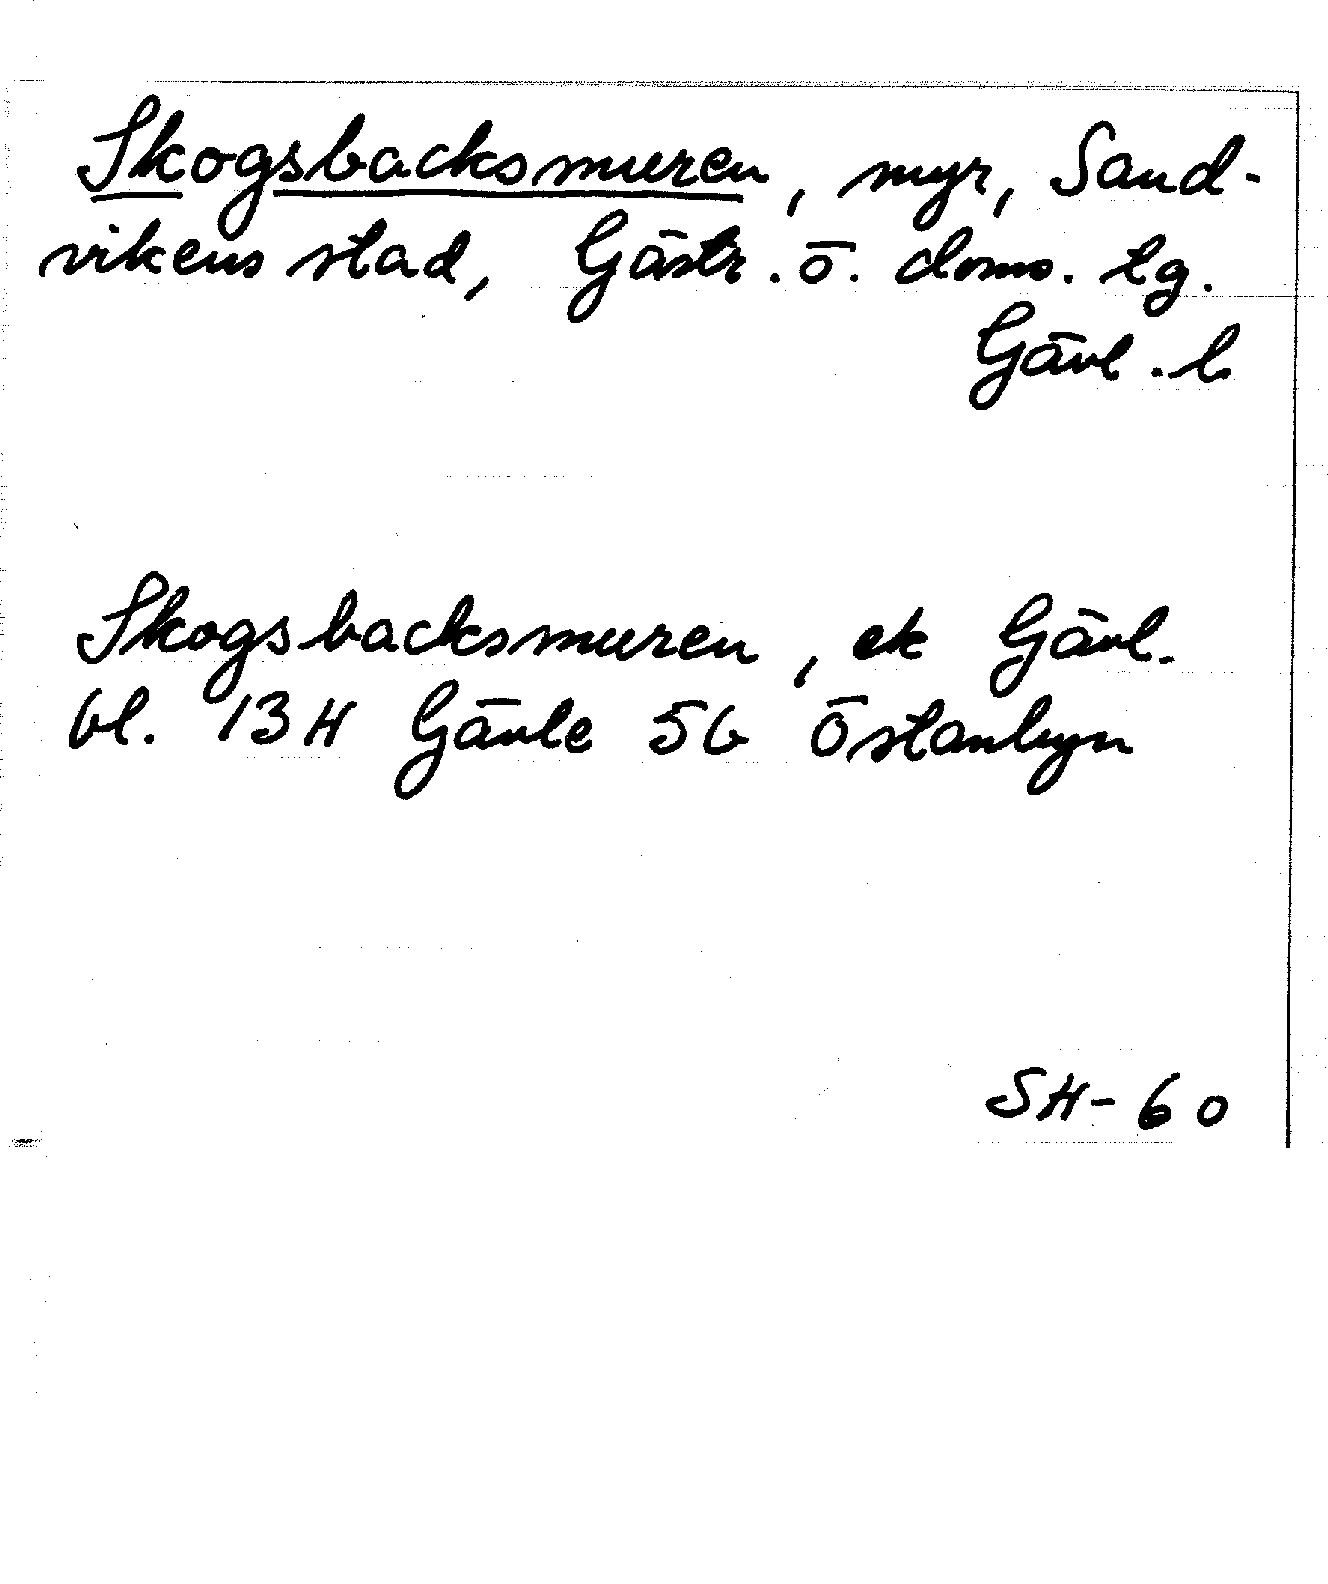 Skogsbacksmuren, myr, Sand-
vikens stad, Gästr. ö. doms. tg.
Gävl. l
Skogsbacksmuren, ek Gävl.
bl. 13H Gävle 5b Östanbyn
SH-60